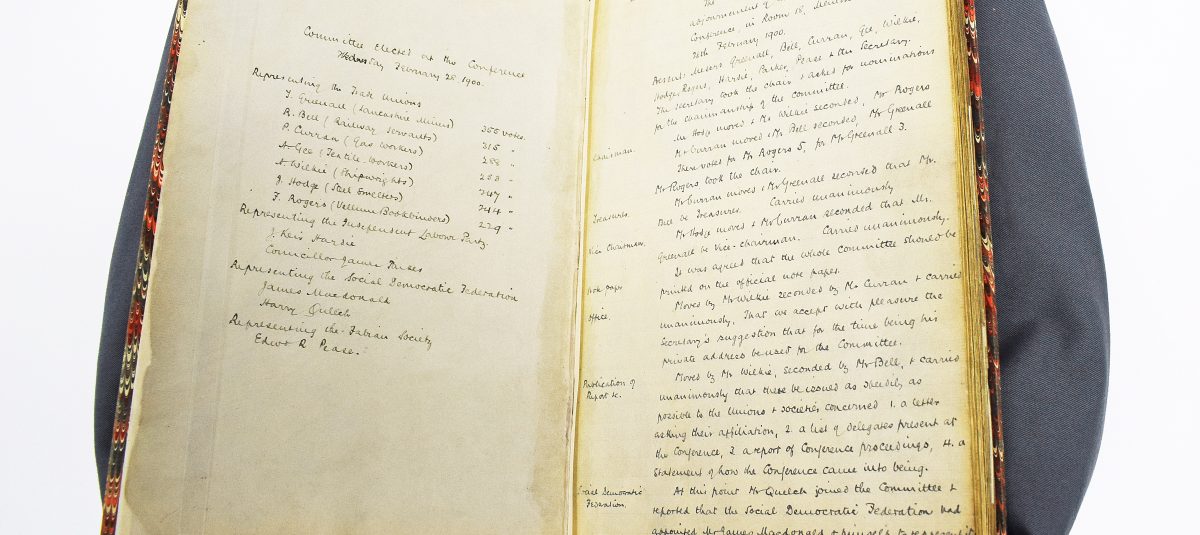 Committee elected at the Conference
Wednesday February 28 1900.
Representing the Trade Unions
T. Greenall (Lancashire Miners) 355 votes.
R. Bell (Railway Servants) 315 "
P. Curran (Gas workers) 288 "
A. Gee (Textile workers) 253 "
A. Wilkie (Shipwrights) 247 "
J. Hodge (Steel Smelters) 244 "
F. Rogers (Vellum Bookbinders) 229 "
Representing the Independent Labour Party.
J. Keir Hardie
Councillor James Parker
Representing the Social Democratic Federation
James Macdonald
Harry Quelch
Representing the Fabian Society
Edwd R. Pease.
The
adjournment of
Conference, in Room 18,
28th February 1900.
Present: Messrs Greenall, Bell, Curran, Gee, Wilkie,
Hodge, Rogers, Hardie, Parker, Pease & the Secretary.
The Secretary took the chair & asked for nominations
for the chairmanship of the Committee.
Mr Hodge moved & Mr Wilkie seconded, Mr Rogers
Chairman. Mr Curran moved & Mr Bell seconded, Mr Greenall
There voted for Mr Rogers 5, for Mr Greenall 3.
Mr Rogers took the chair.
Mr Curran moved & Mr Greenall seconded that Mr.
Treasurer. Bell be Treasurer. Carried unanimously
Mr Hodge moved & Mr Curran seconded that Mr.
Vice Chairman. Greenall be Vice-chairman. Carried unanimously.
It was agreed that the whole Committee should be
Note paper printed on the official note paper.
Moved by Mr Wilkie seconded by Mr Curran & carried
Office. unanimously. That we accept with pleasure the
Secretary's suggestion that for the time being his
private address be used for the Committee.
Moved by Mr Wilkie, seconded by Mr Bell, & carried
Publication of unanimously that there be issued as speedily as
Report &c. possible to the Unions & societies concerned 1. a letter
asking their affiliation, 2. a list of delegates present at
the Conference, 3 a report of Conference proceedings, 4. a
Statement of how the Conference came into being.
Social Democratic At this point Mr Quelch joined the Committee &
Federation. reported that the Social Democratic Federation had
appointed Mr James Macdonald & himself to represent it